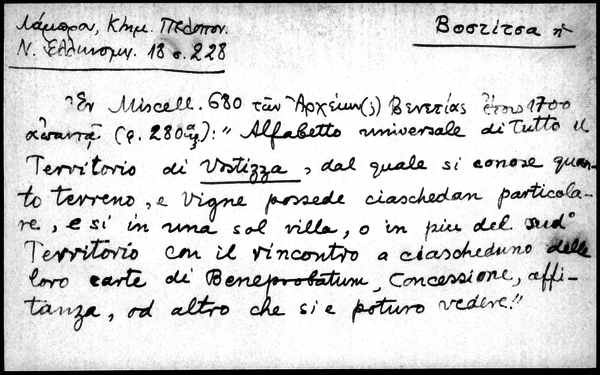 Λάμπρου, Κτημ. Πελοπον.
Ν. Ἑλληνομν. 18 σ. 228
Βοστίτσα ἡ
Ἐν Miscell. 680 τῶν Ἀρχείων(;) Βενετίας ἔτους 1700
ἀπαντᾷ (φ. 280 : "Alfabetto universale di tutto il
Territorio di Vostizza, dal quale si conose quan-
to terreno, e vigne possede ciaschedan particola-
re, e si in una sol villa, o in piu del sud°
Territorio con il rincontro a ciascheduno delle
loro carte di Beneprobatum, Concessione, affi-
tanza, od altro che si e poturo vedere."